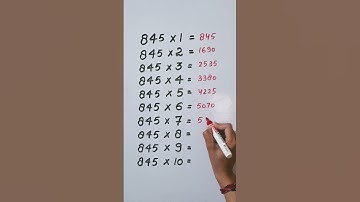 845 x 1 = 845
845 x 2 = 1690
845 x 3 = 2535
845 x 4 = 3380
845 x 5 = 4225
845 x 6 = 5070
845 x 7 = 5
845 x 8 =
845 x 9 =
845 x 10 =